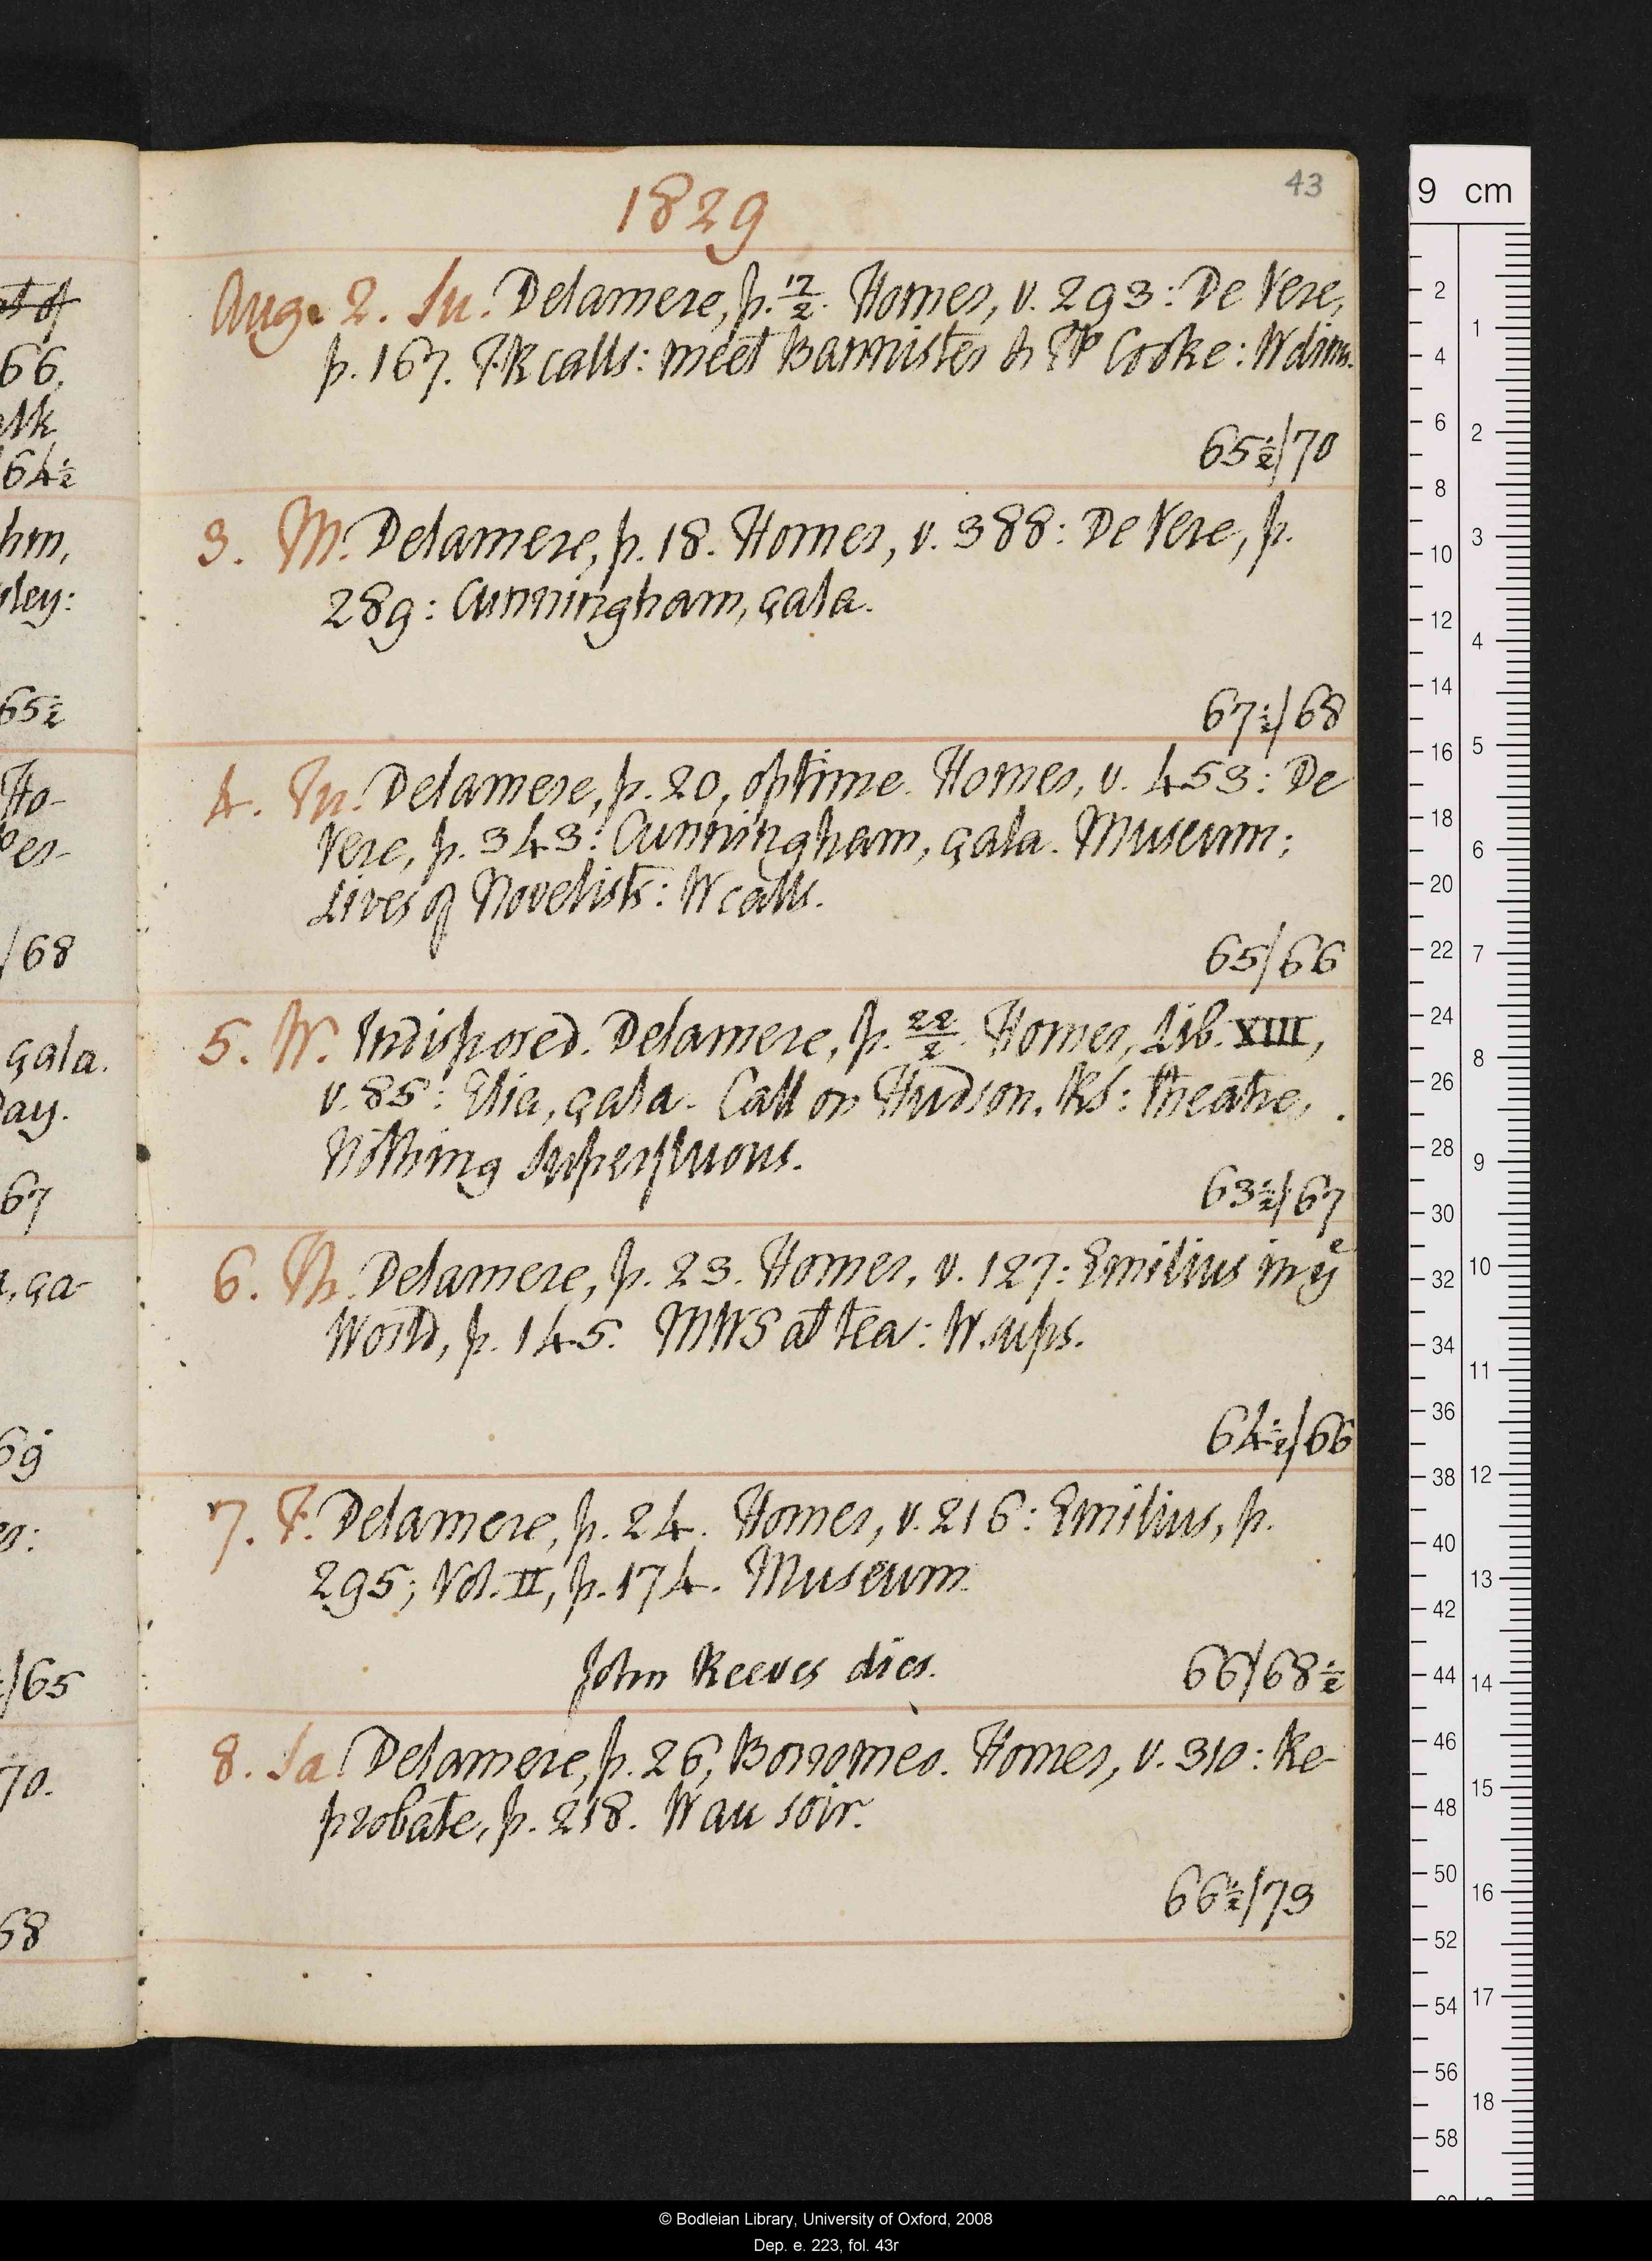 43
1829
Aug. 2. Su. Delamere, p. 17/2. Homer, v. 293: De Vere,
p. 167. FK calls: meet Bannister & TP Cooke: W dines.
65½/70
3. M. Delamere, p. 18. Homer, v. 388: De Vere, p.
289: Cunningham, çala.
67½/68
4. Tu. Delamere, p. 20, optime. Homer, v. 453: De
Vere, p. 343: Cunningham, çala. Museum;
Lives of Novelists: W calls.
65/66
5. W. Indisposed. Delamere, p. 22/2. Homer, Lib. XIII,
v. 85: Elia, çala. Call on Hudson, RS: theatre,
Nothing Superfluous.
63½/67
6. Th. Delamere, p. 23. Homer, v. 127: Emilius in yᵉ
World, p. 145. MWS at tea: W sups.
64½/66
7. F. Delamere, p. 24. Homer, v. 216: Emilius, p.
295; Vol. II, p. 174. Museum.
John Reeves dies.
66/68½
8. Sa. Delamere, p. 26, Borromeo. Homer, v. 310: Re-
probate, p. 218. W au soir.
66½/73
66,
64½
65½
/68
çala.
67
/65
70.
68
9 cm
© Bodleian Library, University of Oxford, 2008
Dep. e. 223, fol. 43r